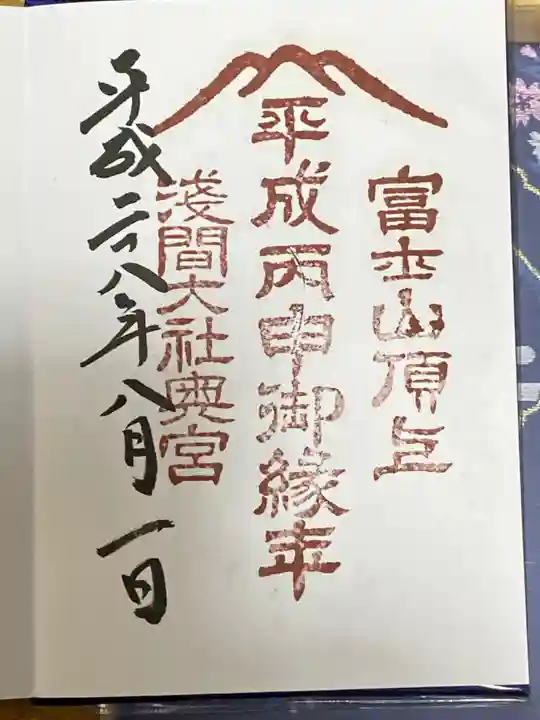 富士山頂上
平成丙申御縁年
淺間大社奥宮
平成二十八年八月一日